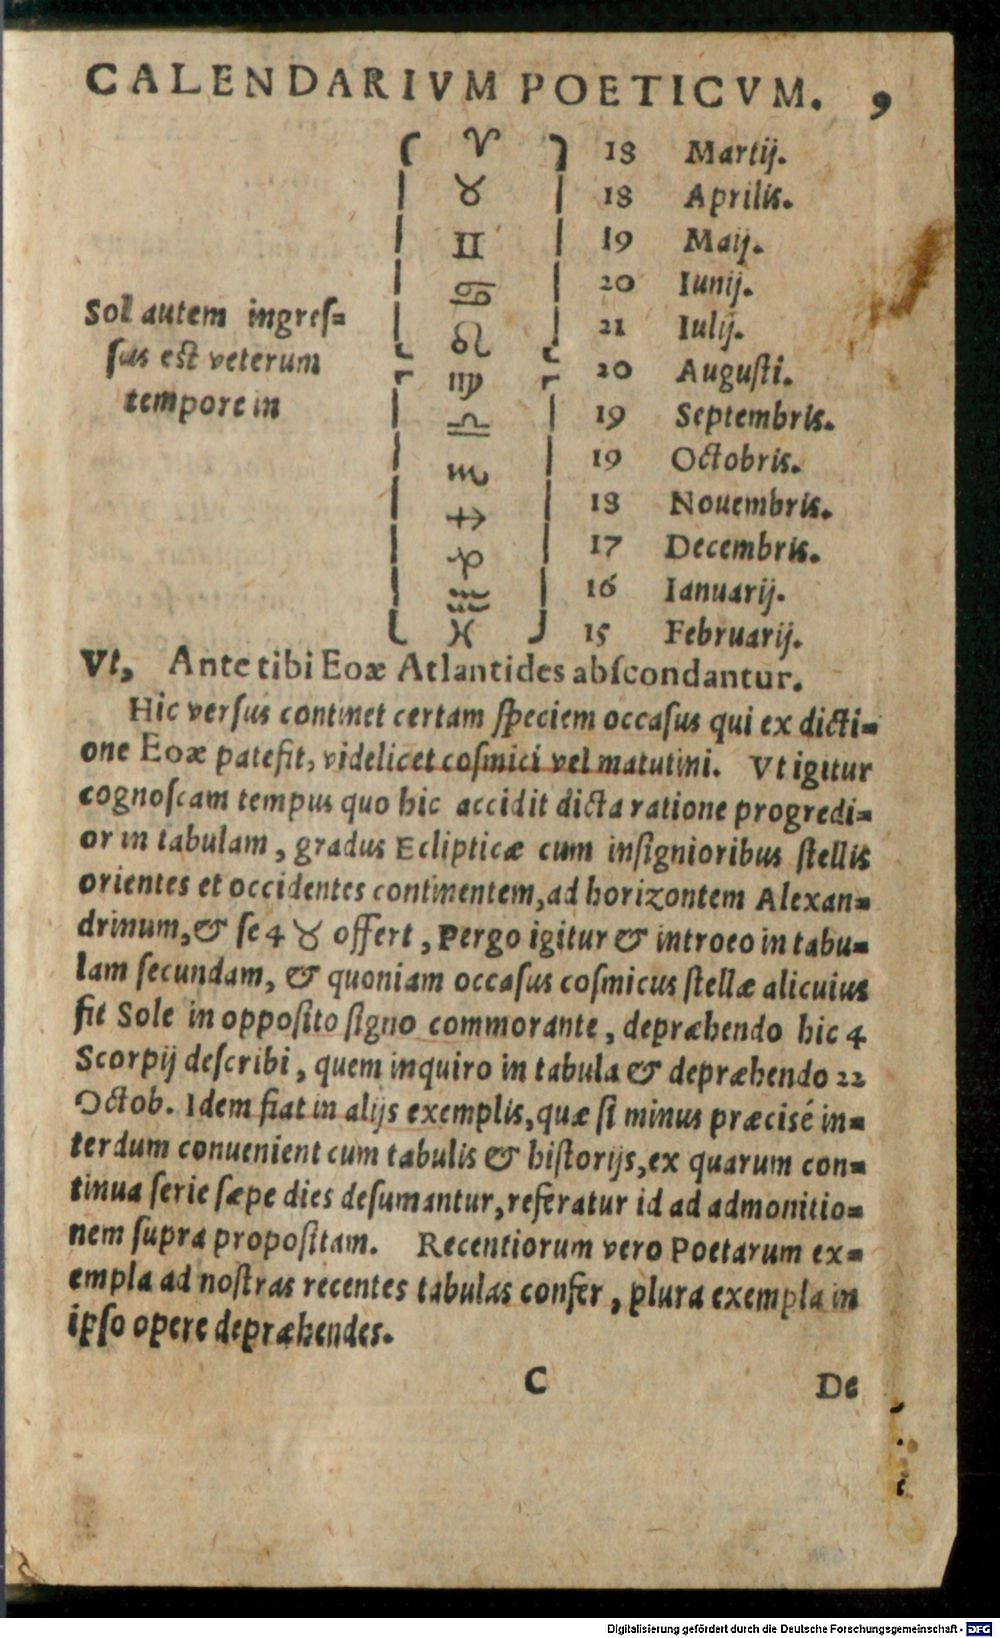 CALENDARIVM POETICVM. 9
♈ 18 Martij.
♉ 18 Aprilis.
♊ 19 Maij.
♋ 20 Iunij.
Sol autem ingreſ=
♌ 21 Iulij.
ſus est veterum
♍ 20 Auguſti.
tempore in
♎ 19 Septembris.
♏ 19 Octobris.
♐ 18 Nouembris.
♑ 17 Decembris.
♒ 16 Ianuarij.
♓ 15 Februarij.
Vt, Ante tibi Eoæ Atlantides abſcondantur.
Hic verſus continet certam ſpeciem occaſus qui ex dicti=
one Eoæ patefit, videlicet coſmici vel matutini. Vt igitur
cognoſcam tempus quo hic accidit dicta ratione progredi=
or in tabulam, gradus Eclipticæ cum inſignioribus ſtellis
orientes et occidentes continentem, ad horizontem Alexan=
drinum, & ſe 4 ♉ offert, Pergo igitur & introeo in tabu=
lam ſecundam, & quoniam occaſus coſmicus ſtellæ alicuius
fit Sole in oppoſito ſigno commorante, depræhendo hic 4
Scorpij deſcribi, quem inquiro in tabula & depræhendo 22
Octob. Idem fiat in alijs exemplis, quæ ſi minus præcisé in=
terdum conuenient cum tabulis & hiſtorijs, ex quarum con=
tinua ſerie ſæpe dies deſumantur, referatur id ad admonitio=
nem ſupra propoſitam. Recentiorum vero Poetarum ex=
empla ad noſtras recentes tabulas confer, plura exempla in
ipſo opere depræhendes.
C De
Digitalisierung gefördert durch die Deutsche Forschungsgemeinschaft - DFG